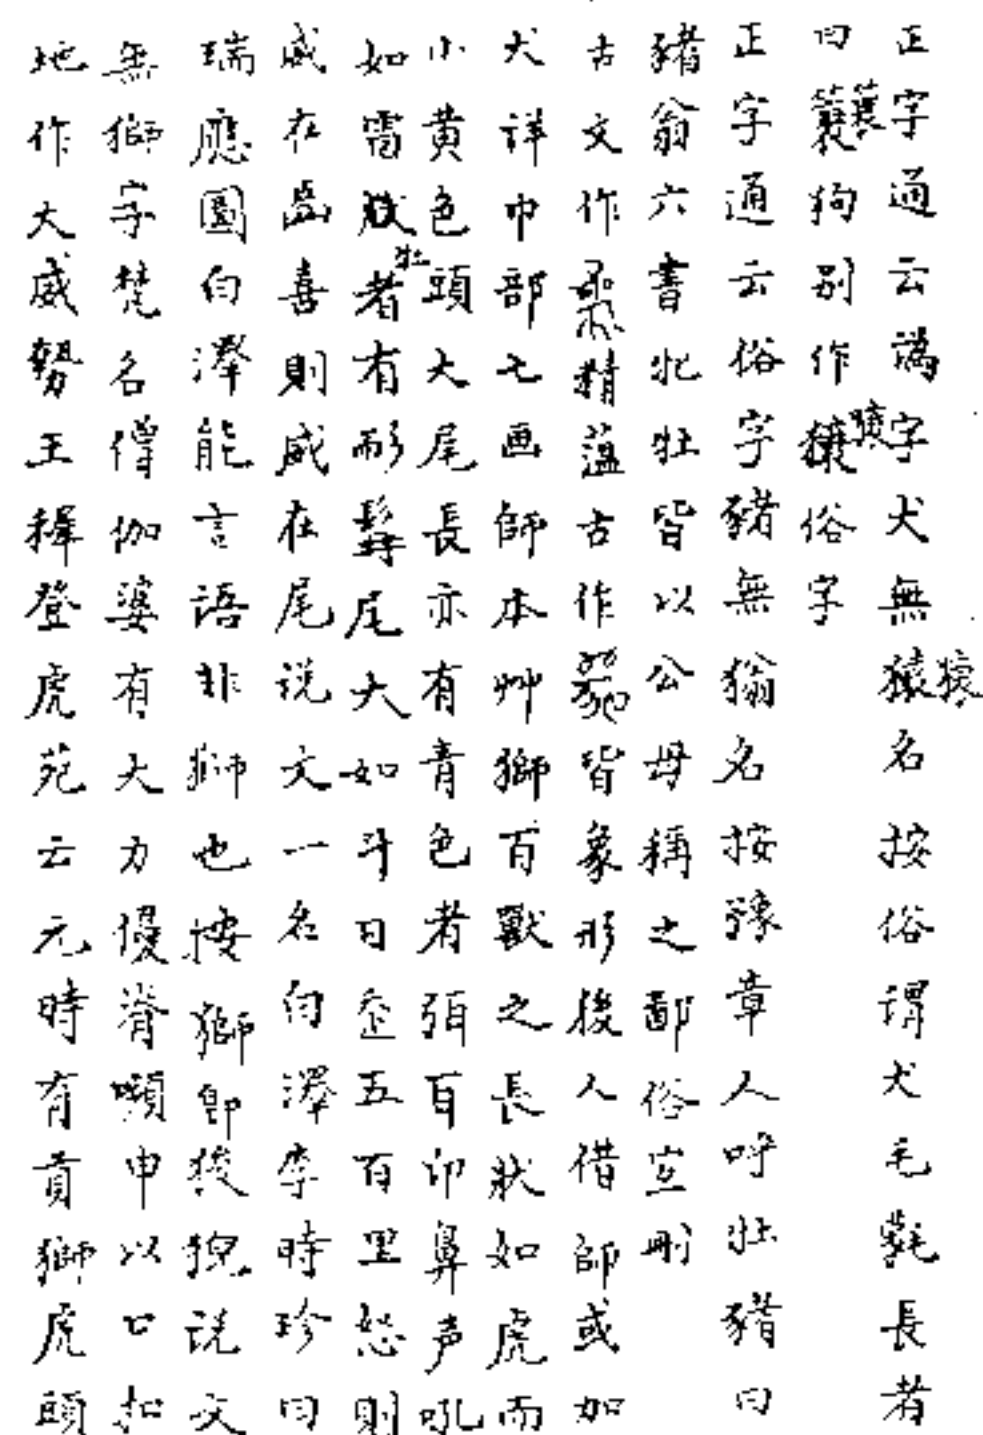 正字通云譌字犬無猿名按俗謂犬毛氄長者
曰蓑狗别作俗字
正字通云俗字豬無㺋名按豫章人呼牡豬曰
豬翁六書牝牡皆以公母稱之鄙俗宜刪
古文作精薀古作皆象形後人借師或如
犬詳巾部七画師本艸獅百獸之長狀如虎而
小黄色頭大尾長亦有青色者弭百印鼻声吼
如雷牡者有耏髥尾大如斗日走五百里怒則
威在齒喜則威在尾说文一名白澤李時珍曰
瑞應圖白澤能言語非獅也按獅即狻猊说文
無獅字梵名僧伽婆有大力優脊嚬申以口扣
地作大威勢王稚登虎苑云元時有貢獅虎頭